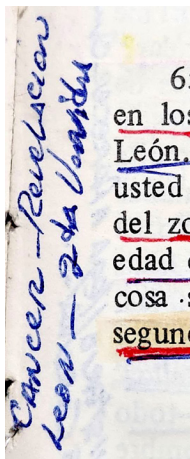 Cancer - Revelacion
Leon - 2da Venida
6
en los
León,
usted
del zo
edad
cosa
segun